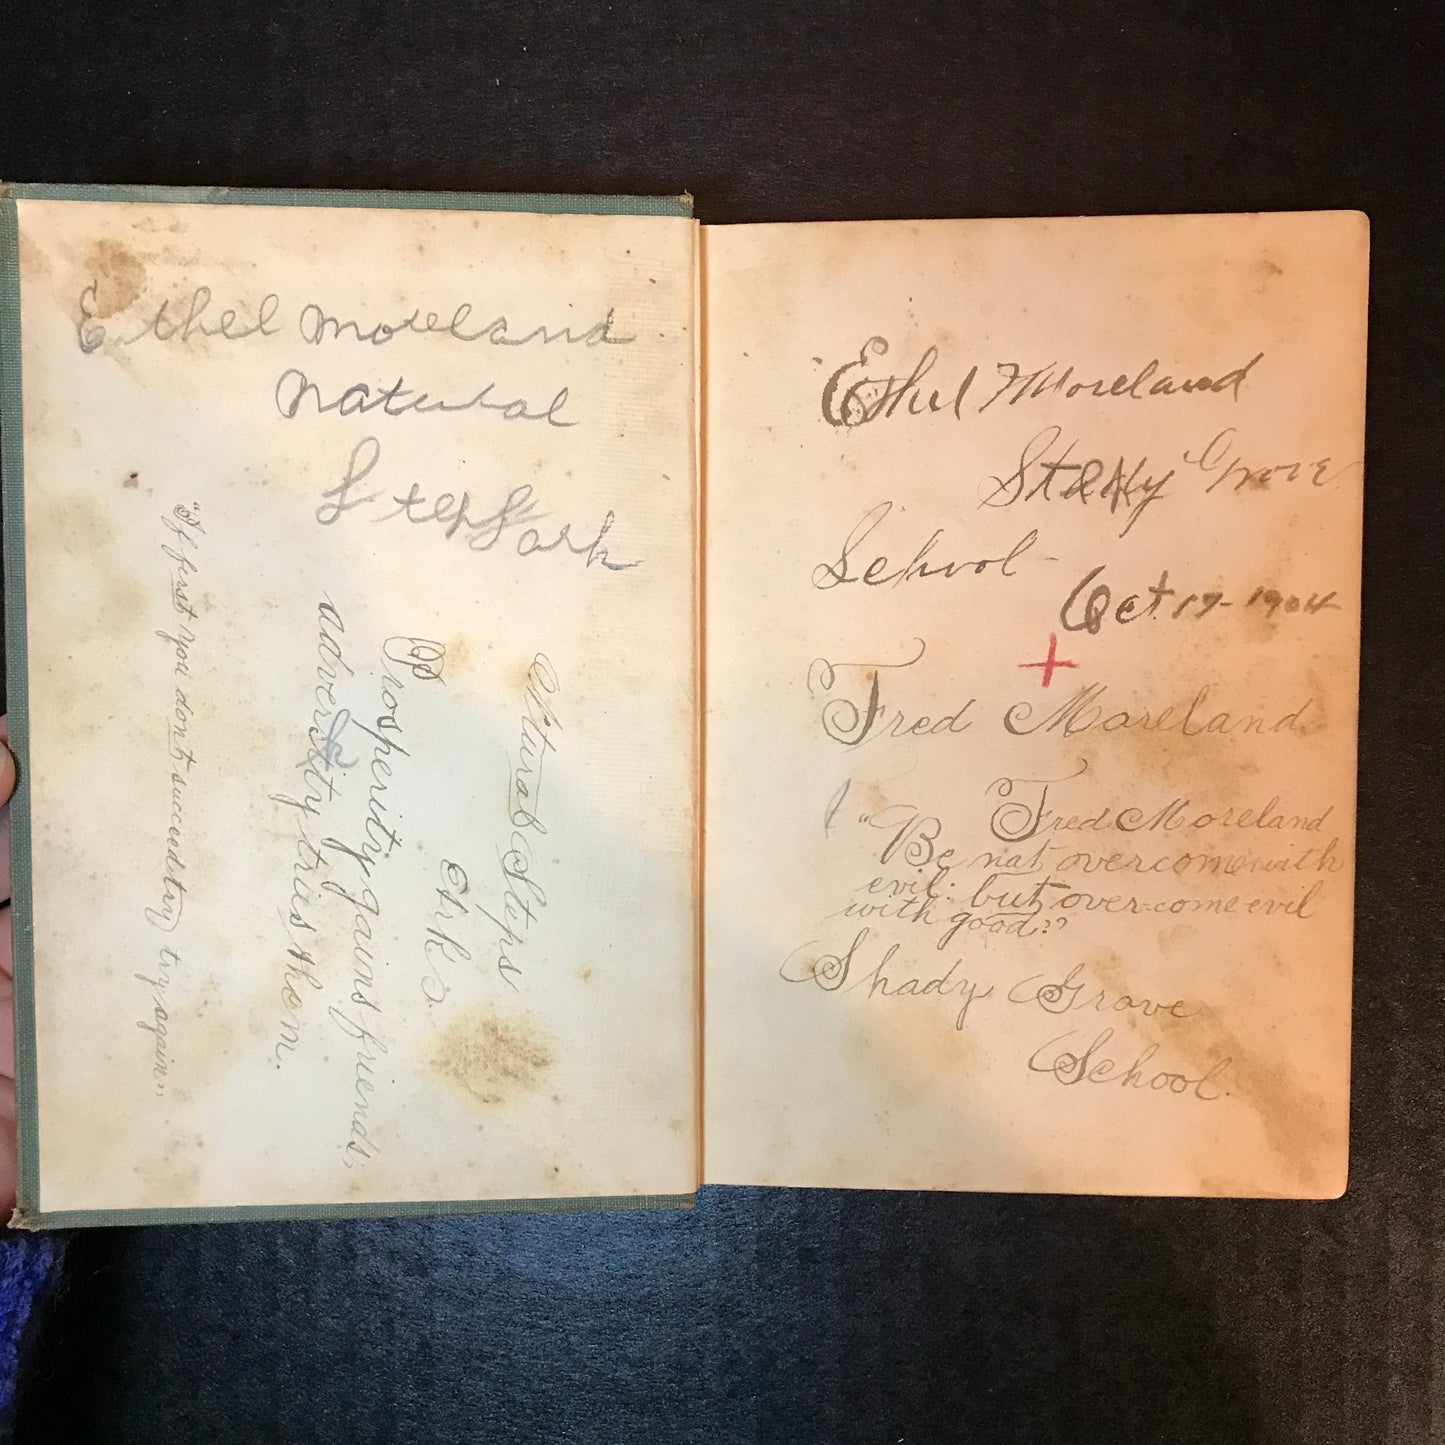 Ethel Moreland
Natural
Steps Ark
Natural Steps
Ark's.
Prosperity gains friends,
adversity tries them.
"If first you don't succeed try try again"
Ethel Moreland
Grove
School -
Oct. 17 - 1904
+
Fred Moreland
Fred Moreland
"Be not overcome with
evil: but over-come evil
with good."
Shady Grove
School.